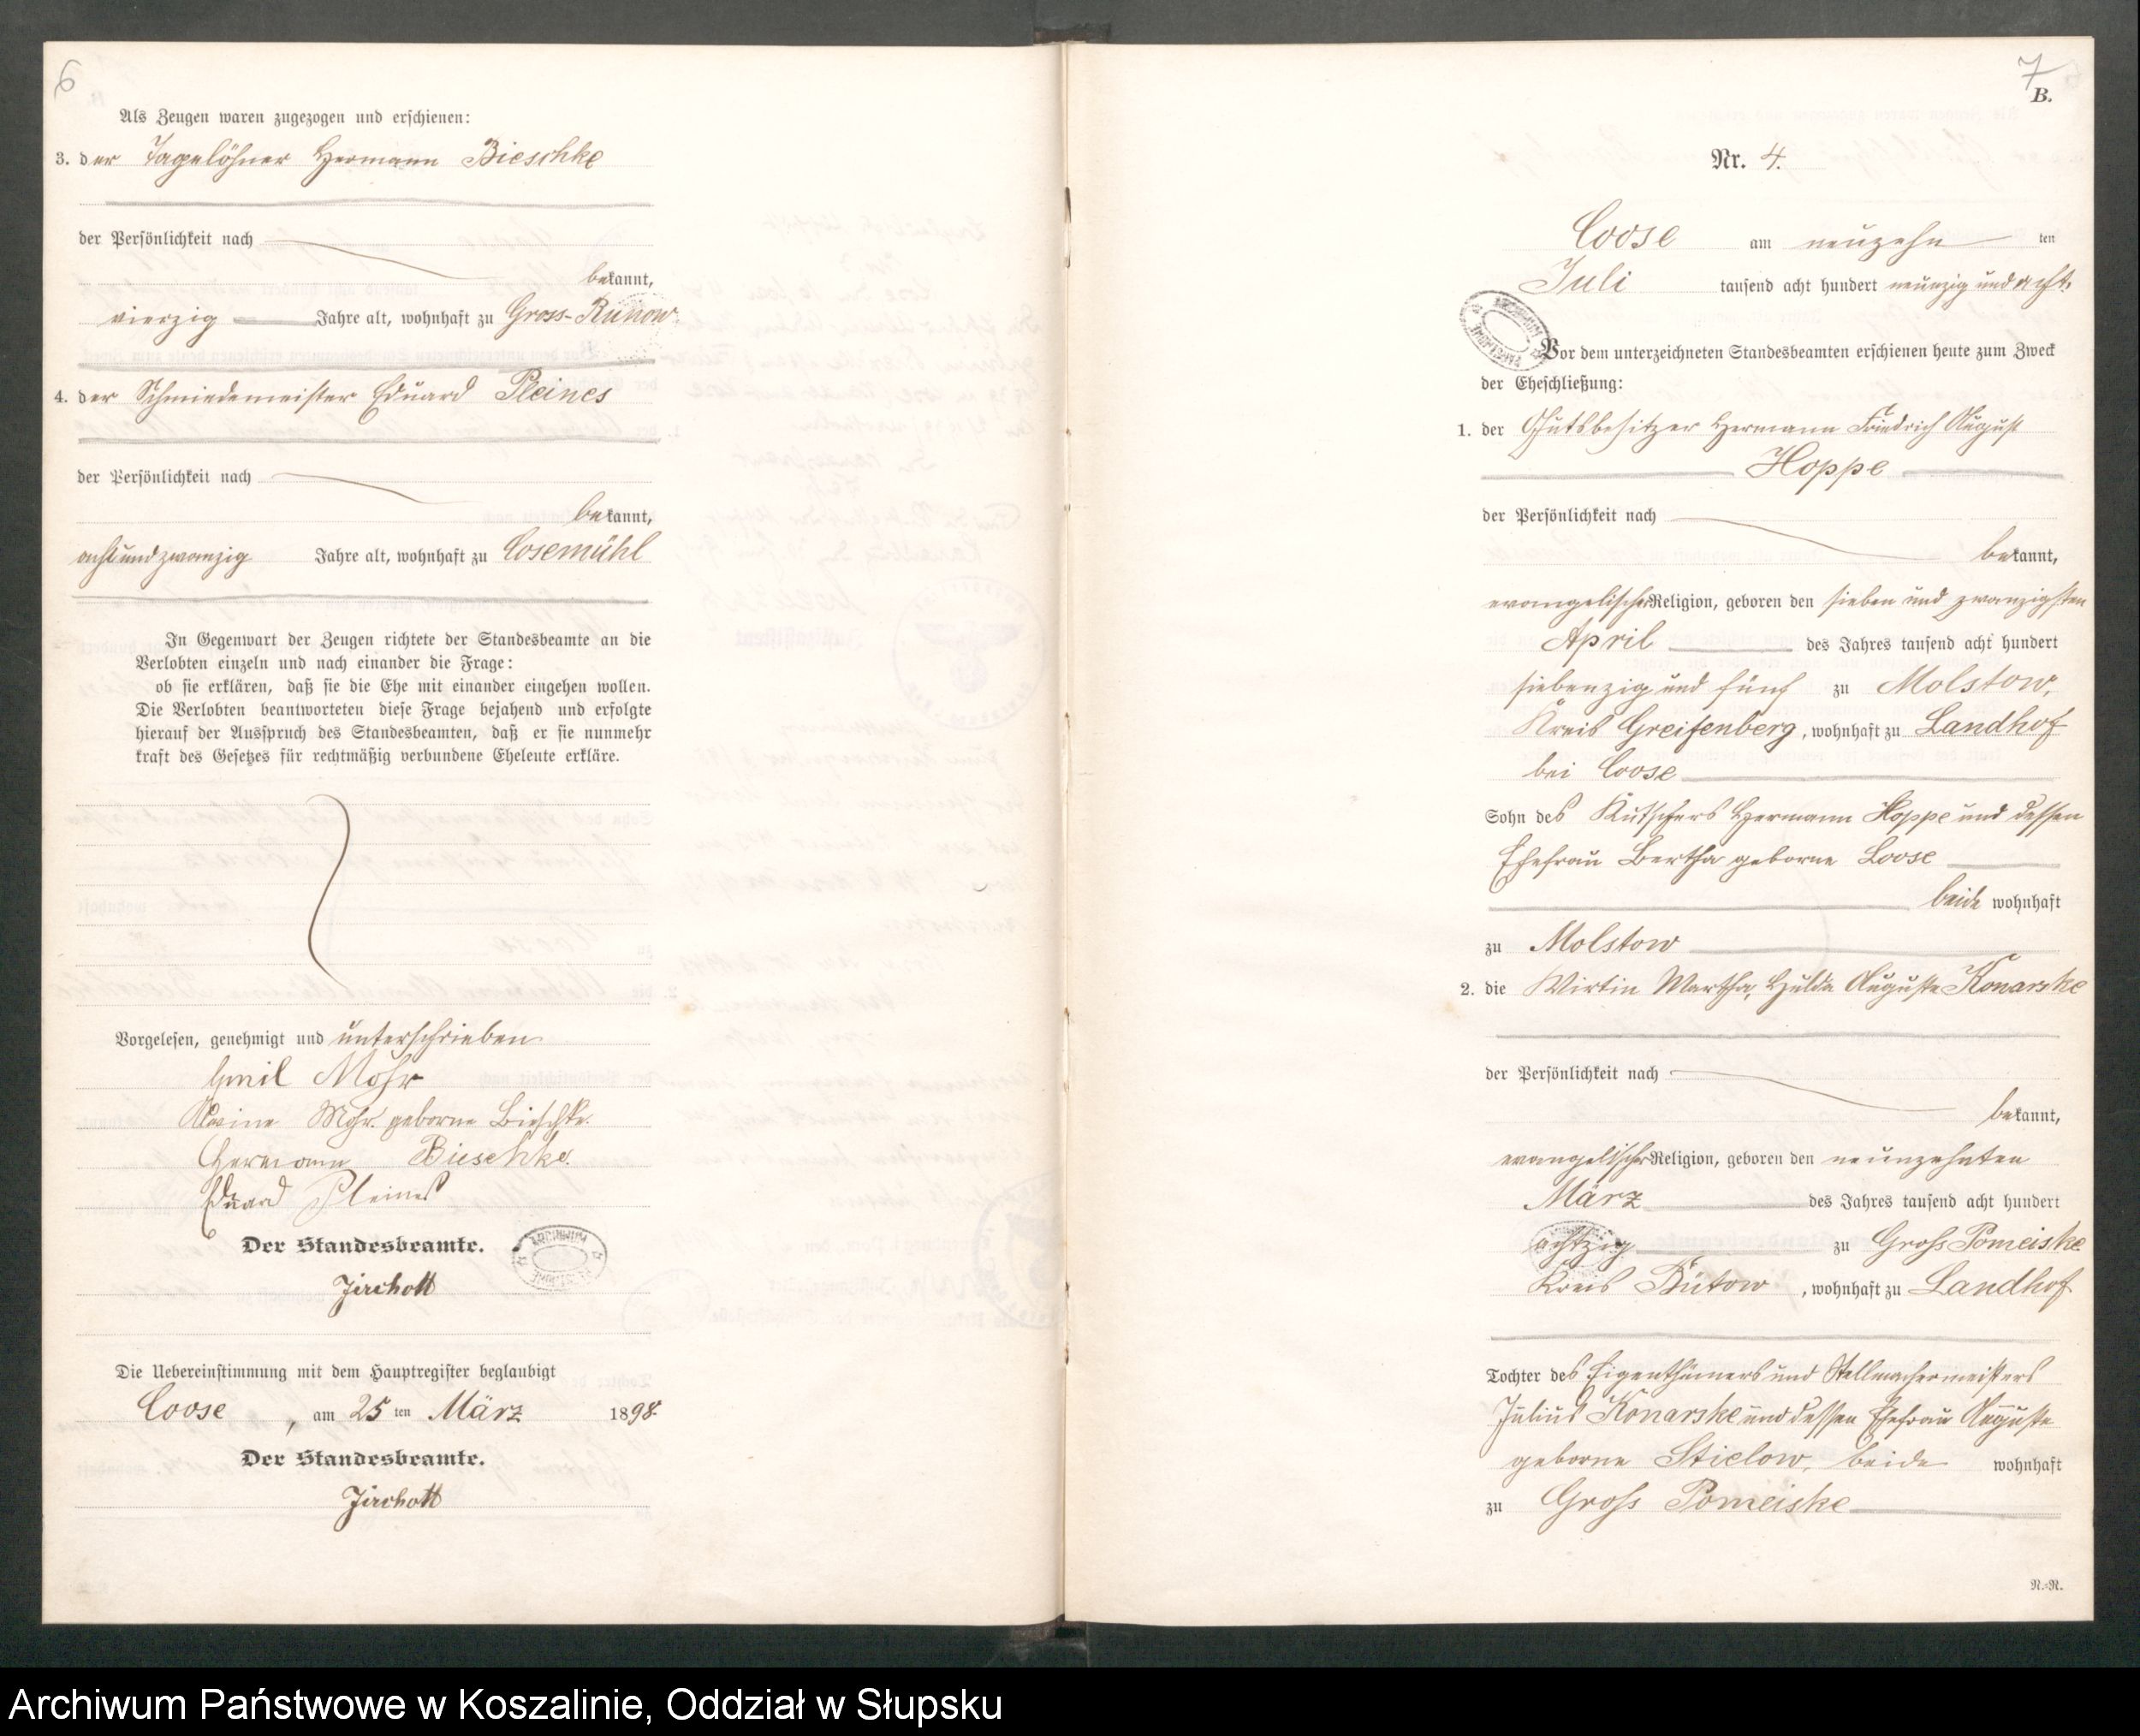 6
Als Zeugen waren zugezogen und erschienen:
3. der Tagelöhner Hermann Bieschke
der Persönlichkeit nach
bekannt,
vierzig Jahre alt, wohnhaft zu Gross-Runow
4. der Schmiedemeister Eduard Pleines
der Persönlichkeit nach
bekannt,
acht und zwanzig Jahre alt, wohnhaft zu Cosemühl
In Gegenwart der Zeugen richtete der Standesbeamte an die
Verlobten einzeln und nach einander die Frage:
ob sie erklären, daß sie die Ehe mit einander eingehen wollen.
Die Verlobten beantworteten diese Frage bejahend und erfolgte
hierauf der Ausspruch des Standesbeamten, daß er sie nunmehr
kraft des Gesetzes für rechtmäßig verbundene Eheleute erkläre.
Vorgelesen, genehmigt und unterschrieben
Emil Mohr
Alwine Mohr geborne Bieschke.
Hermann Bieschke.
Eduard Pleines
Der Standesbeamte.
ARCHIWUM
Jirchott
Die Uebereinstimmung mit dem Hauptregister beglaubigt
Coose, am 25 ten März 1898.
Der Standesbeamte.
Jirchott
7
B.
Nr. 4.
Coose am neunzehn ten
Juli tausend acht hundert neunzig und acht.
ARCHIWUM
Vor dem unterzeichneten Standesbeamten erschienen heute zum Zweck
der Eheschließung:
1. der Gutsbesitzer Hermann Friedrich August
Hoppe
der Persönlichkeit nach
bekannt,
evangelischer Religion, geboren den sieben und zwanzigsten
April des Jahres tausend acht hundert
siebenzig und fünf zu Molstow,
Kreis Greifenberg, wohnhaft zu Landhof
bei Coose
Sohn des Kutschers Hermann Hoppe und dessen
Ehefrau Bertha geborne Loose
beide wohnhaft
zu Molstow
2. die Wirtin Martha, Hulda Auguste Konarske
der Persönlichkeit nach
bekannt,
evangelischer Religion, geboren den neunzehnten
März des Jahres tausend acht hundert
achtzig zu Groß Pomeiske
Kreis Bütow, wohnhaft zu Landhof
Tochter des Eigenthümers und Stellmachermeisters
Julius Konarske und dessen Ehefrau Auguste
geborne Stielow, beide wohnhaft
zu Groß Pomeiske
N.-N.
Archiwum Państwowe w Koszalinie, Oddział w Słupsku